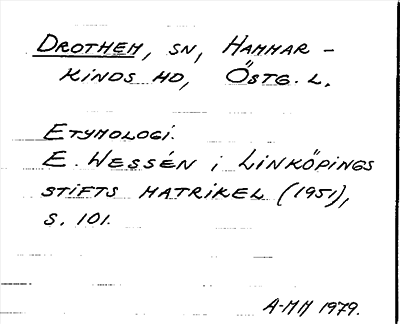 DROTHEM, SN, HAMMAR-
KINDS HD, ÖSTG. L.
ETYMOLOGI.
E. WESSÉN i LINKÖPINGS
STIFTS MATRIKEL (1951),
S. 101.
A-MH 1979.